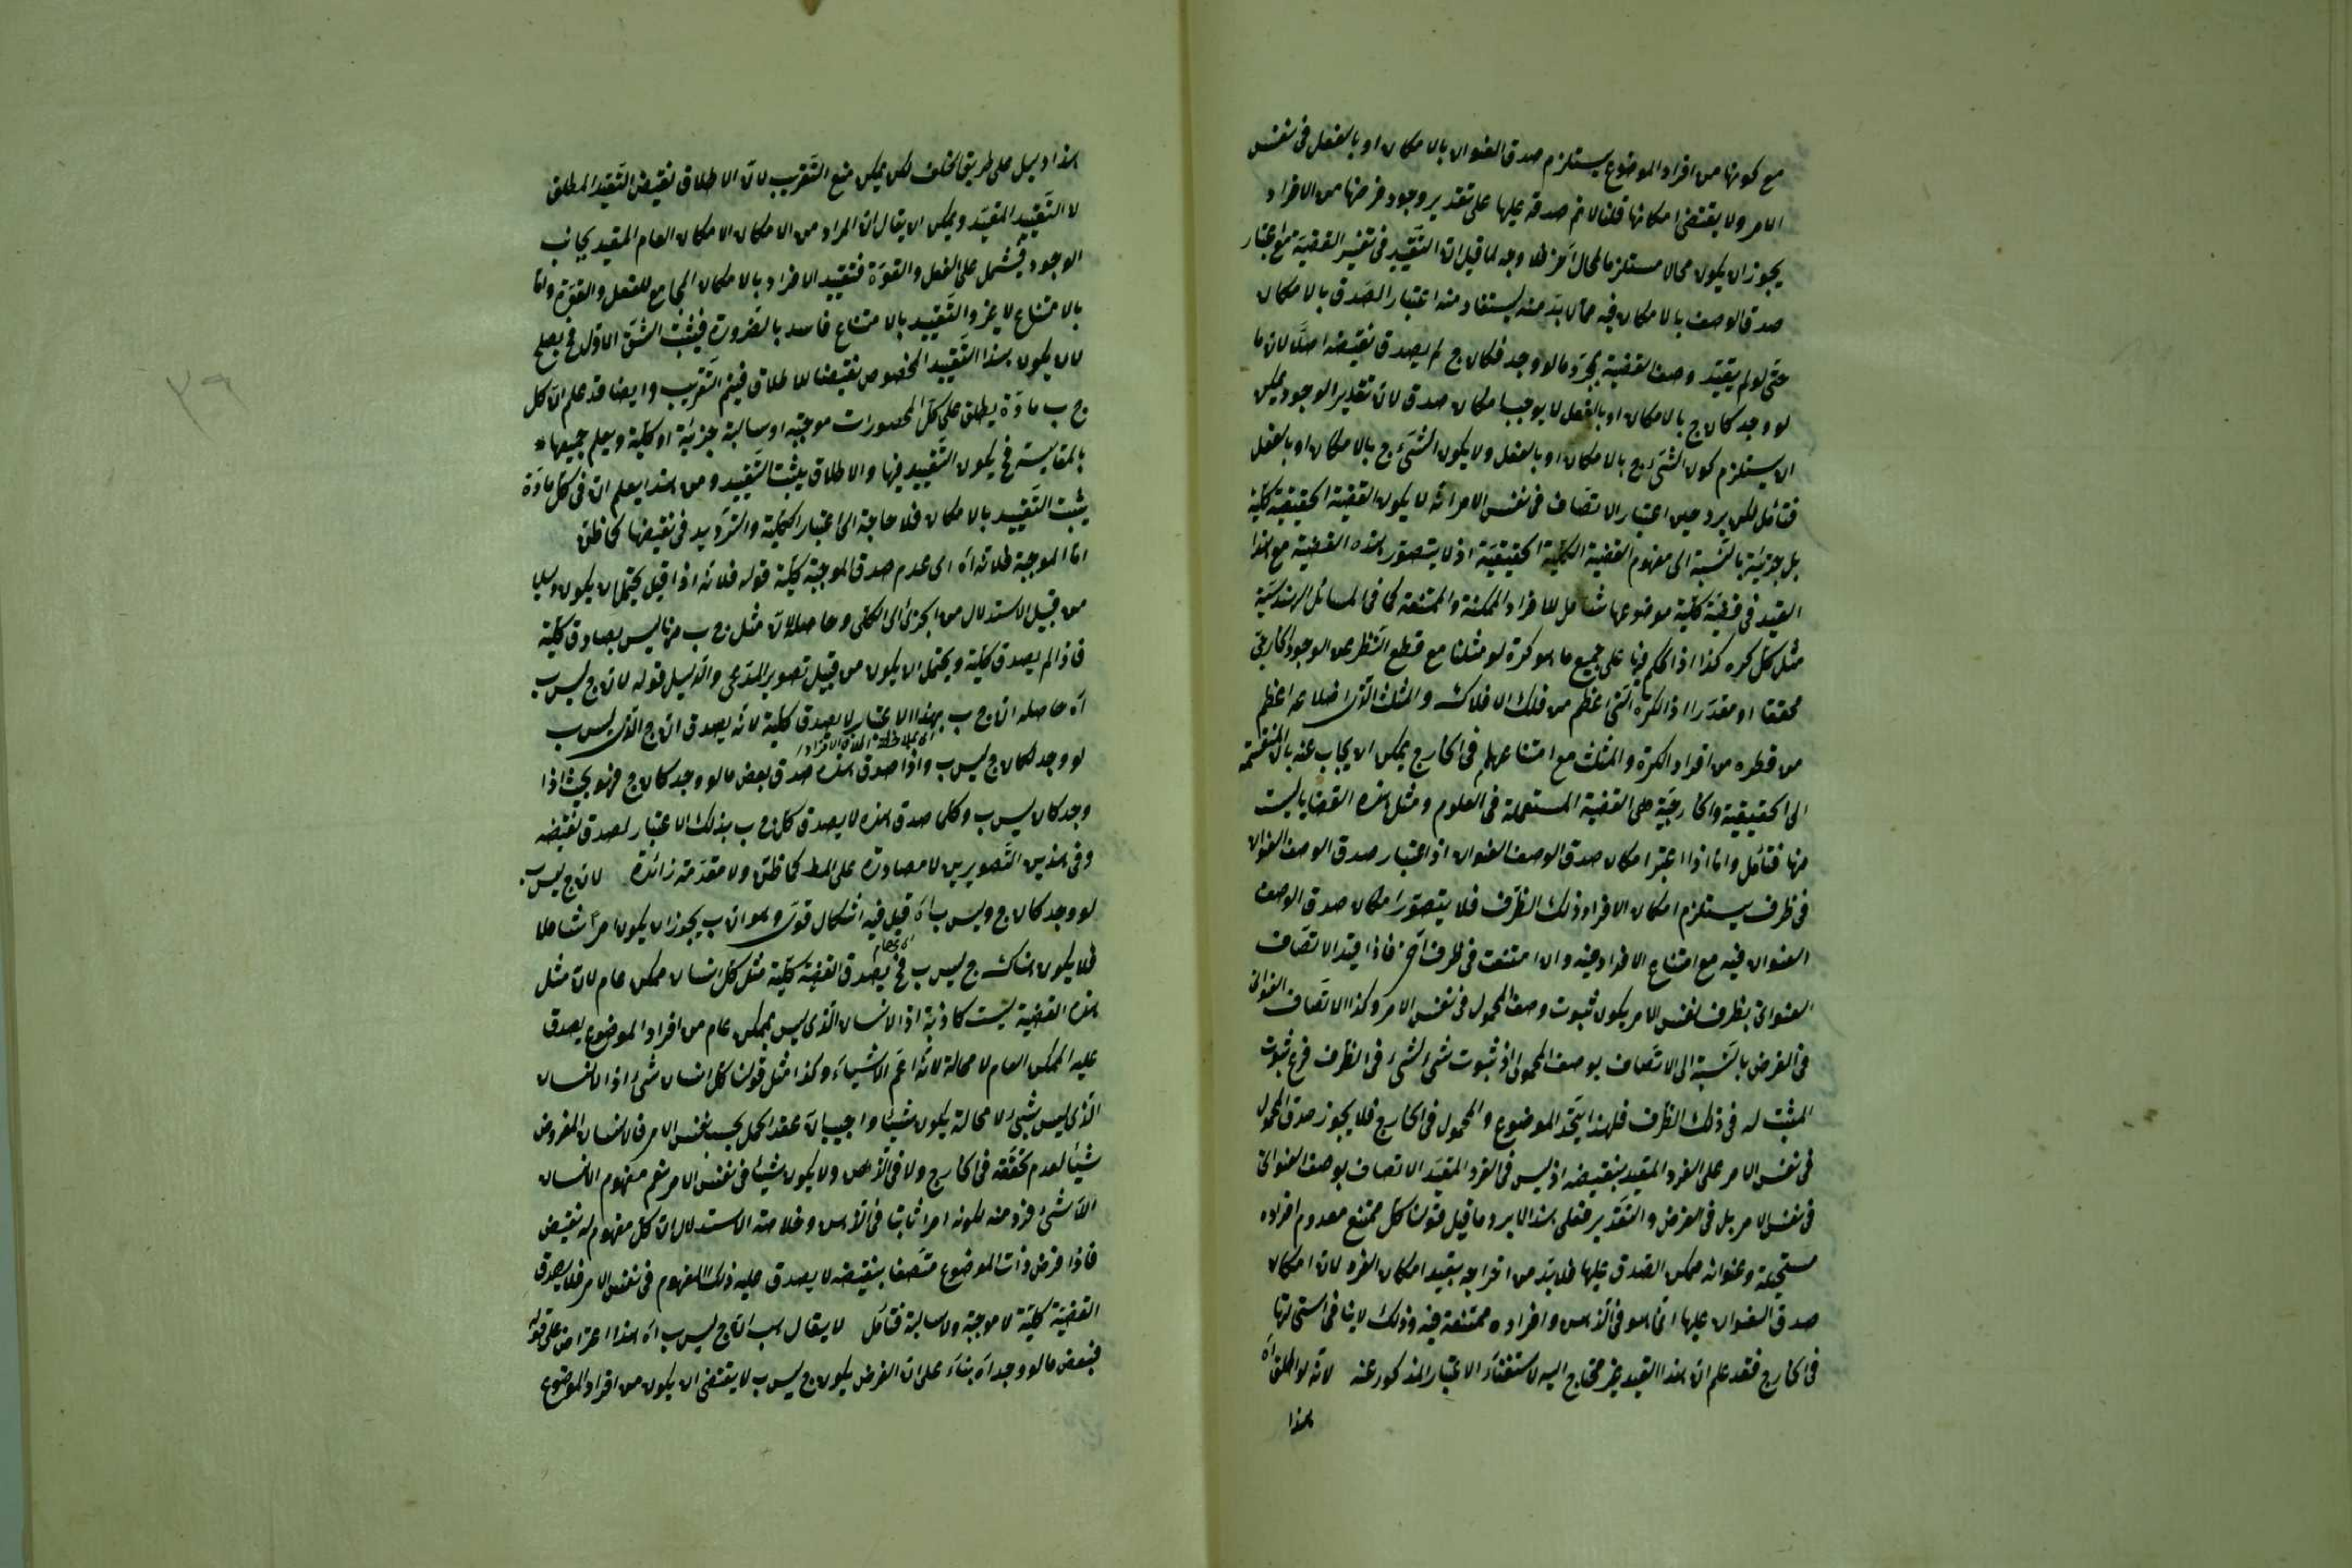 مع كونها من افراد الموضوع يستلزم صدق العنوان بالامكان او بالفعل فى نفس
الامر ولا يقتضى امكانها قلنا لانم صدقه عليها على تقدير وجود فرضها من الافراد
يجوز ان يكون محالا مستلزما لمحال آخر فلا وجه لما قيل ان التقييد فى تفسير القضية مع اعتبار
صدق الوصف بالامكان فيه مما لابد منه ليستفاد منه اعتبار الصدق بالامكان
حتى لو لم يقيد وصف القضية بمجرد ما لو وجد فكان ج لم يصدق نقيضه اصلا لان ما
لو وجد كان ج بالامكان او بالفعل لا يوجب امكان صدق لان تقدير الوجود يمكن
ان يستلزم كون الشئ ج بالامكان او بالفعل ولا يكون الشئ ج بالامكان او بالفعل
فتأمل لكن يرد حين اعتبار الاتصاف فى نفس الامر انه لا يكون القضية الحقيقية كلية
بل جزئية بالنسبة الى مفهوم القضية الكلية الحقيقية اذ لا يتصور هذه القضية مع هذا
القيد فى قضية كلية موضوعها شامل للافراد الممكنة والممتنعة كما فى المسائل الهندسية
مثل كل كره كذا اذ الحكم فيها على جميع ما هو كرة لو مثلثا مع قطع النظر عن الوجود الخارجى
محققا او مقدرا اذ الكرة التى اعظم من فلك الافلاك والمثلث الذى اضلاعه اعظم
من قطره من افراد الكرة والمثلث مع امتناعهما فى الخارج يمكن ان يجاب عنه بان المنقسمة
الى الحقيقية والخارجية هى القضية المستعملة فى العلوم ومثل هذه القضايا ليست
منها فتأمل واما اذا اعتبر امكان صدق الوصف العنوان اذ اعتبار صدق الوصف العنوان
فى ظرف يستلزم امكان الافراد ذلك الظرف فلا يتصور امكان صدق الوصف
العنوان فيه مع امتناع الافراد فيه وان امتنعت فى ظرف آخر فاذا قيد الاتصاف
العنوانى بظرف نفس الامر يكون ثبوت وصف المحمول فى نفس الامر وكذا الاتصاف العنوانى
فى الفرض بالنسبة الى الاتصاف بوصف المحمول اذ ثبوت شئ لشئ فى الظرف فرع ثبوت
المثبت له فى ذلك الظرف فلهذا يتحد الموضوع والمحمول فى الخارج فلا يجوز صدق المحمول
فى نفس الامر على الفرد المقيد بنقيضه اذ ليس فى الفرد المقيد الاتصاف بوصف العنوانى
فى نفس الامر بل فى الفرض والتقدير فعلى هذا لا يرد ما قيل قولنا كل ممتنع معدوم افراده
مستحيلة وعنوانه ممكن الصدق عليها فلابد من اخراجه بقيد امكان الفرد لان امكان
صدق العنوان عليها انما هو فى الذهن وافراده ممتنعة فيه وذلك لا ينافى استحالتها
فى الخارج فقد علم ان هذا القيد غير محتاج اليه لاستغناء الاعتبار المذكور عنه لانه لو اطلق اه
هذا
هذا دليل على طريق الخلف لكن يمكن منع التقريب لان الاطلاق نقيض التقييد المطلق
لا التقييد المقيد ويمكن ان يقال ان المراد من الامكان الامكان العام المقيد بجانب
الوجود فيشمل على الفعل والقوة فتقييد الافراد بالامكان المجامع للفعل والقوة واما
بالامتناع لا غير والتقييد بالامتناع فاسد بالضرورة فيثبت الشق الاول فح يصلح
لان يكون هذا التقييد المخصوص نقيضا للاطلاق فيتم التقريب وايضا قد علم ان كل
ج ب مادة يطلق على كل المحصورات موجبة او سالبة جزئية او كلية ويعلم جميعها
بالمقايسة فح يكون التقييد فيها والاطلاق يثبت التقييد ومن هذا يعلم ان فى كل مادة
يثبت التقييد بالامكان فلا حاجة الى اعتبار الكلية والترديد فى نقيضها كما ظن
اما الموجبة فلانه اه اى عدم صدق الموجبة كلية قوله فلانه اذا قيل يحتمل ان يكون دليلا
من قبيل الاستدلال من الجزئى الى الكلى وحاصله ان مثل ج ب مما ليس بصادق كلية
فاذا لم يصدق كلية ويحتمل ان يكون من قبيل تصوير المدعى والدليل قوله لان ج ليس ب
اه حاصله ان ج ب بهذا الاعتبار لا يصدق كلية لانه يصدق ان ج الذى ليس ب
اى بملاحظة اطلاق الافراد
لو وجد لكان ج ليس ب واذا صدق هذه صدق بعض ما لو وجد كان ج فهو بحيث اذا
وجد كان ليس ب وكلما صدق هذه لا يصدق كل ج ب بذلك الاعتبار لصدق نقيضه
وفى هذين التصويرين لا مصادرة على المط كما ظن ولا مقدمة زائدة لان ج ليس ب
لو وجد كان ج وليس ب اه قيل فيه اشكال قوى وهو ان ب يجوز ان يكون امرا شاملا
فلا يكون هناك ج ليس ب فح يصدق القضية كلية مثل كل انسان ممكن عام لان مثل
هذه القضية ليست كاذبة اذ الانسان الذى ليس بممكن عام من افراد الموضوع يصدق
عليه الممكن العام لا محالة لانه اعم الاشياء وكذا مثل قولنا كل انسان شئ اذ الانسان
الذى ليس بشئ لا محالة يكون شيئا واجيب بان عقد الحمل بحسب نفس الامر فالانسان المفروض
شيئا لعدم تحققه فى الخارج ولا فى الذهن ولا يكون شيئا فى نفس الامر نعم مفهوم الانسان
اللاشئ فرد منه لكونه امرا ثابتا فى الذهن وخلاصة الاستدلال ان كل مفهوم له نقيض
فاذا فرض ذات الموضوع متصفا بنقيضه لا يصدق عليه ذلك المفهوم فى نفس الامر فلا يصدق
القضية كلية لا موجبة ولا سالبة فتأمل لا يقال هب ان ج ليس ب اه هذا اعتراض على قوله
فبعض ما لو وجد اه بناء على ان الفرض يكون ج ليس ب لا يقتضى ان يكون من افراد الموضوع